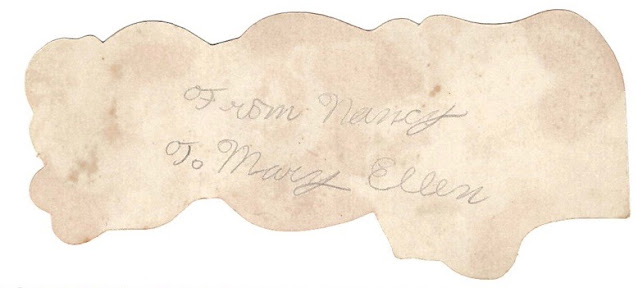 From Nancy
To Mary Ellen